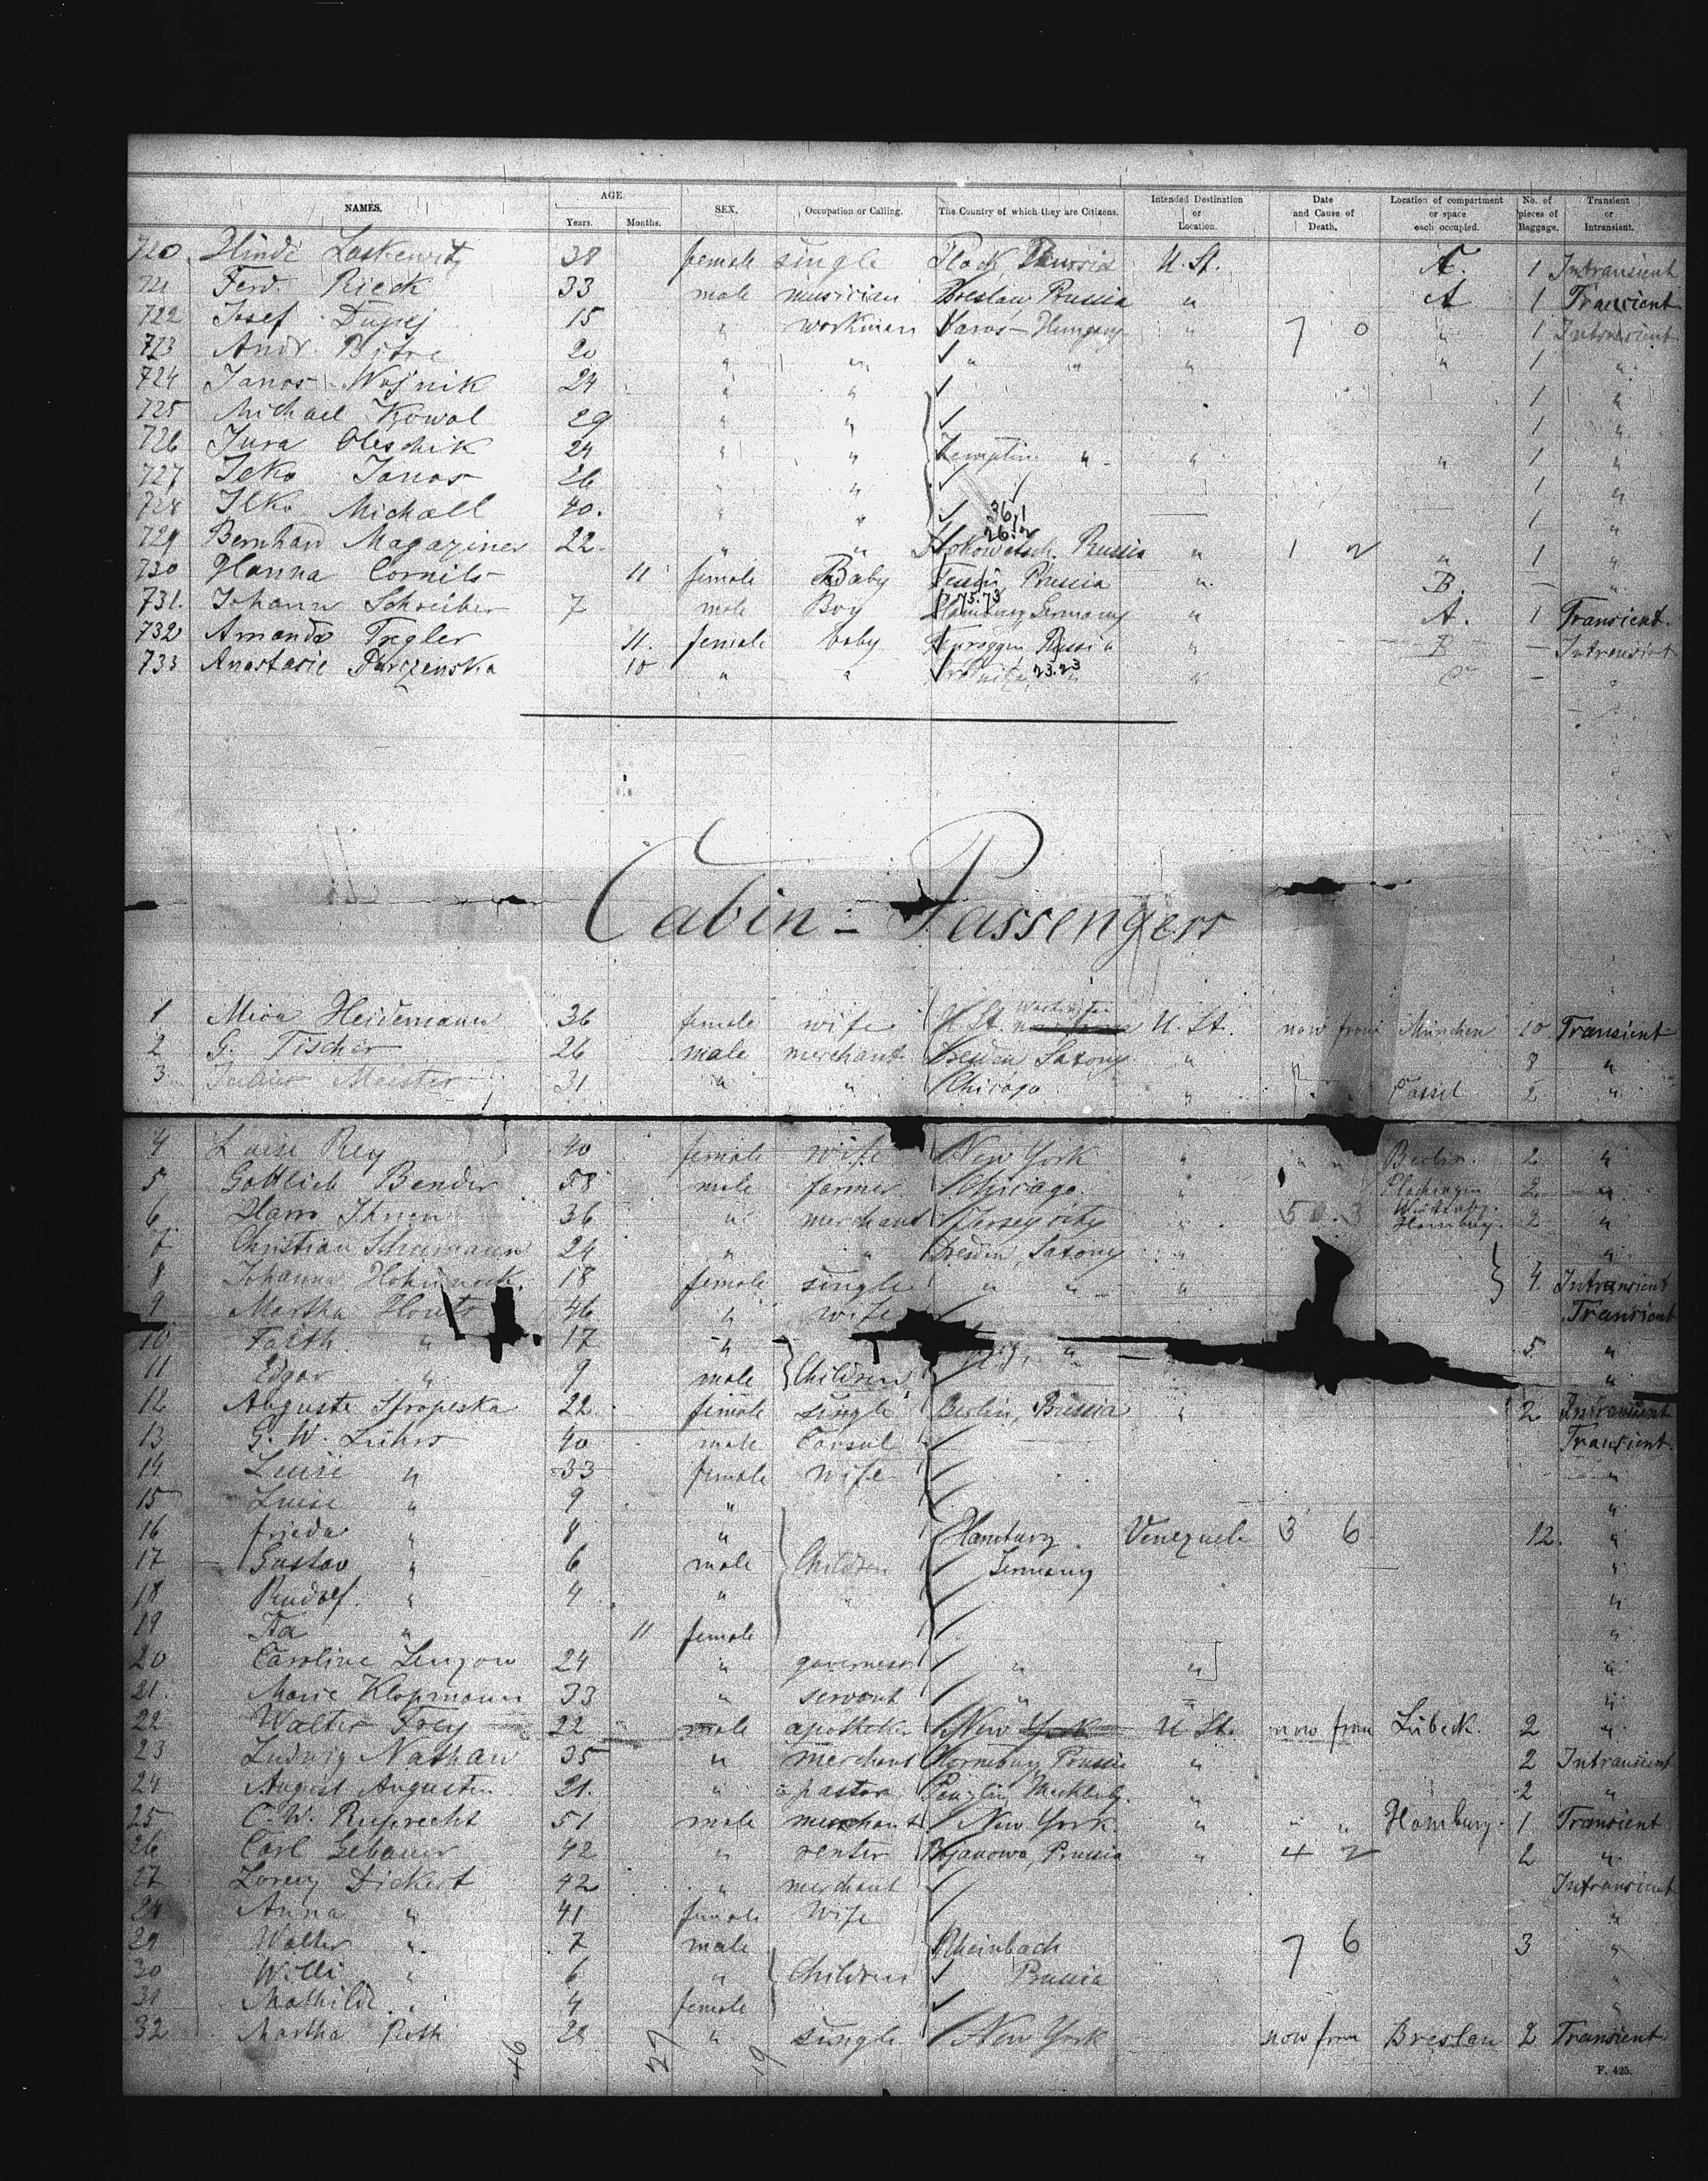 NAMES. AGE Years. Months. SEX. Occupation or Calling. The Country of which they are Citizens. Intended Destination or Location. Date and Cause of Death. Location of compartment or space each occupied. No. of pieces of Baggage. Transient or Intransient.
720. Hinde Laskewitz 38 female single Plock, Russia U. St. A. 1 Intransient
721 Ferd. Rieck 33 male musician Breslau, Prussia " A 1 Transient
722 Josef Dupej 15 " workman Saros-Hungary " 7 0 " 1 Intransient
723 Andr. 20 " " " " " " 1 "
724 Janos Wojnik 24 " " 1 "
725 Michael Kowal 29 " " 1 "
726 Jura Oleschik 24 " " Zemplin " " " 1 "
727 Janos 26 " " 1 "
728 Ilko Michall 40. " " 1 "
36,1
26,2
729 Bernhard Magaziner 22. " " Russia " 1 2 " 1 "
730 Hanna Cornils 11 female Baby Prussia " B. – "
75.73
731. Johann Schreiber 7 male Boy Hamburg, Germany " A. 1 Transient.
732 Amanda Tregler 11. female baby Russia " B – Intransient
733 Anastasie 10 " " 23.23 " " –
Cabin = Passengers
1 Heidemann 36 female wife U. St. Washington U. St. now from München 10 Transient
2 G. Tischer 26 male merchant Dresden, Saxony " 8 "
3 Julius Meister 31. " " Chicago " " " Cassel 2 "
4 Luise Rey 40 female wife New York " " " Berlin. 2 "
5 Gottlieb Bender 58 male farmer Chicago. " 2 "
6 Harro 36 " merchant Jersey city " 50.3 Hamburg. 2 "
7 Christian Schuemann 24 " " Dresden, Saxony " "
8 Johanna 18 female single " " " 4. Intransient
9 Martha 46 " wife Transient
10 Faith " 17 " " 5. "
11 Edgar " 9 male Children "
12 Auguste 22. female single Berlin, Prussia " 2 Intransient
13 G. W. Lührs 40 male Consul Transient
14 Luise " 33 female wife "
15 Luise " 9 " "
16 Frieda " 8 " Hamburg. Venezuela 3 6 12. "
17 Gustav " 6 male Children Germany "
18 Rudolf. " 4 " "
19 Ita " 11 female "
20 Caroline Lenzow 24 " governess " " "
21. Marie Klopmann 33 " servant " " "
22 Walter Frey 22 male apotheker New York U St. now from Lübeck. 2 "
23 Ludwig Nathan 35 " merchant Prussia " 2 Intransient
24 August Augustin 21. " pastor Penzlin, Mecklbg. " 2 "
25 C. W. Ruprecht 51 male merchant New York " " " Hamburg. 1 Transient
26 Carl Gebauer 42 " renter Prussia " 4 2 2 "
27 Lorenz Dickert 42 " merchant Intransient
28 Anna " 41 female Wife "
29 Walter " 7 male Rheinbach 7 6 3 "
30 Willi " 6 " Children Prussia "
31 Mathilde " 4 female "
32 Martha Roth 28 " single New York now from Breslau 2 Transient
46 27 19
F. 425.